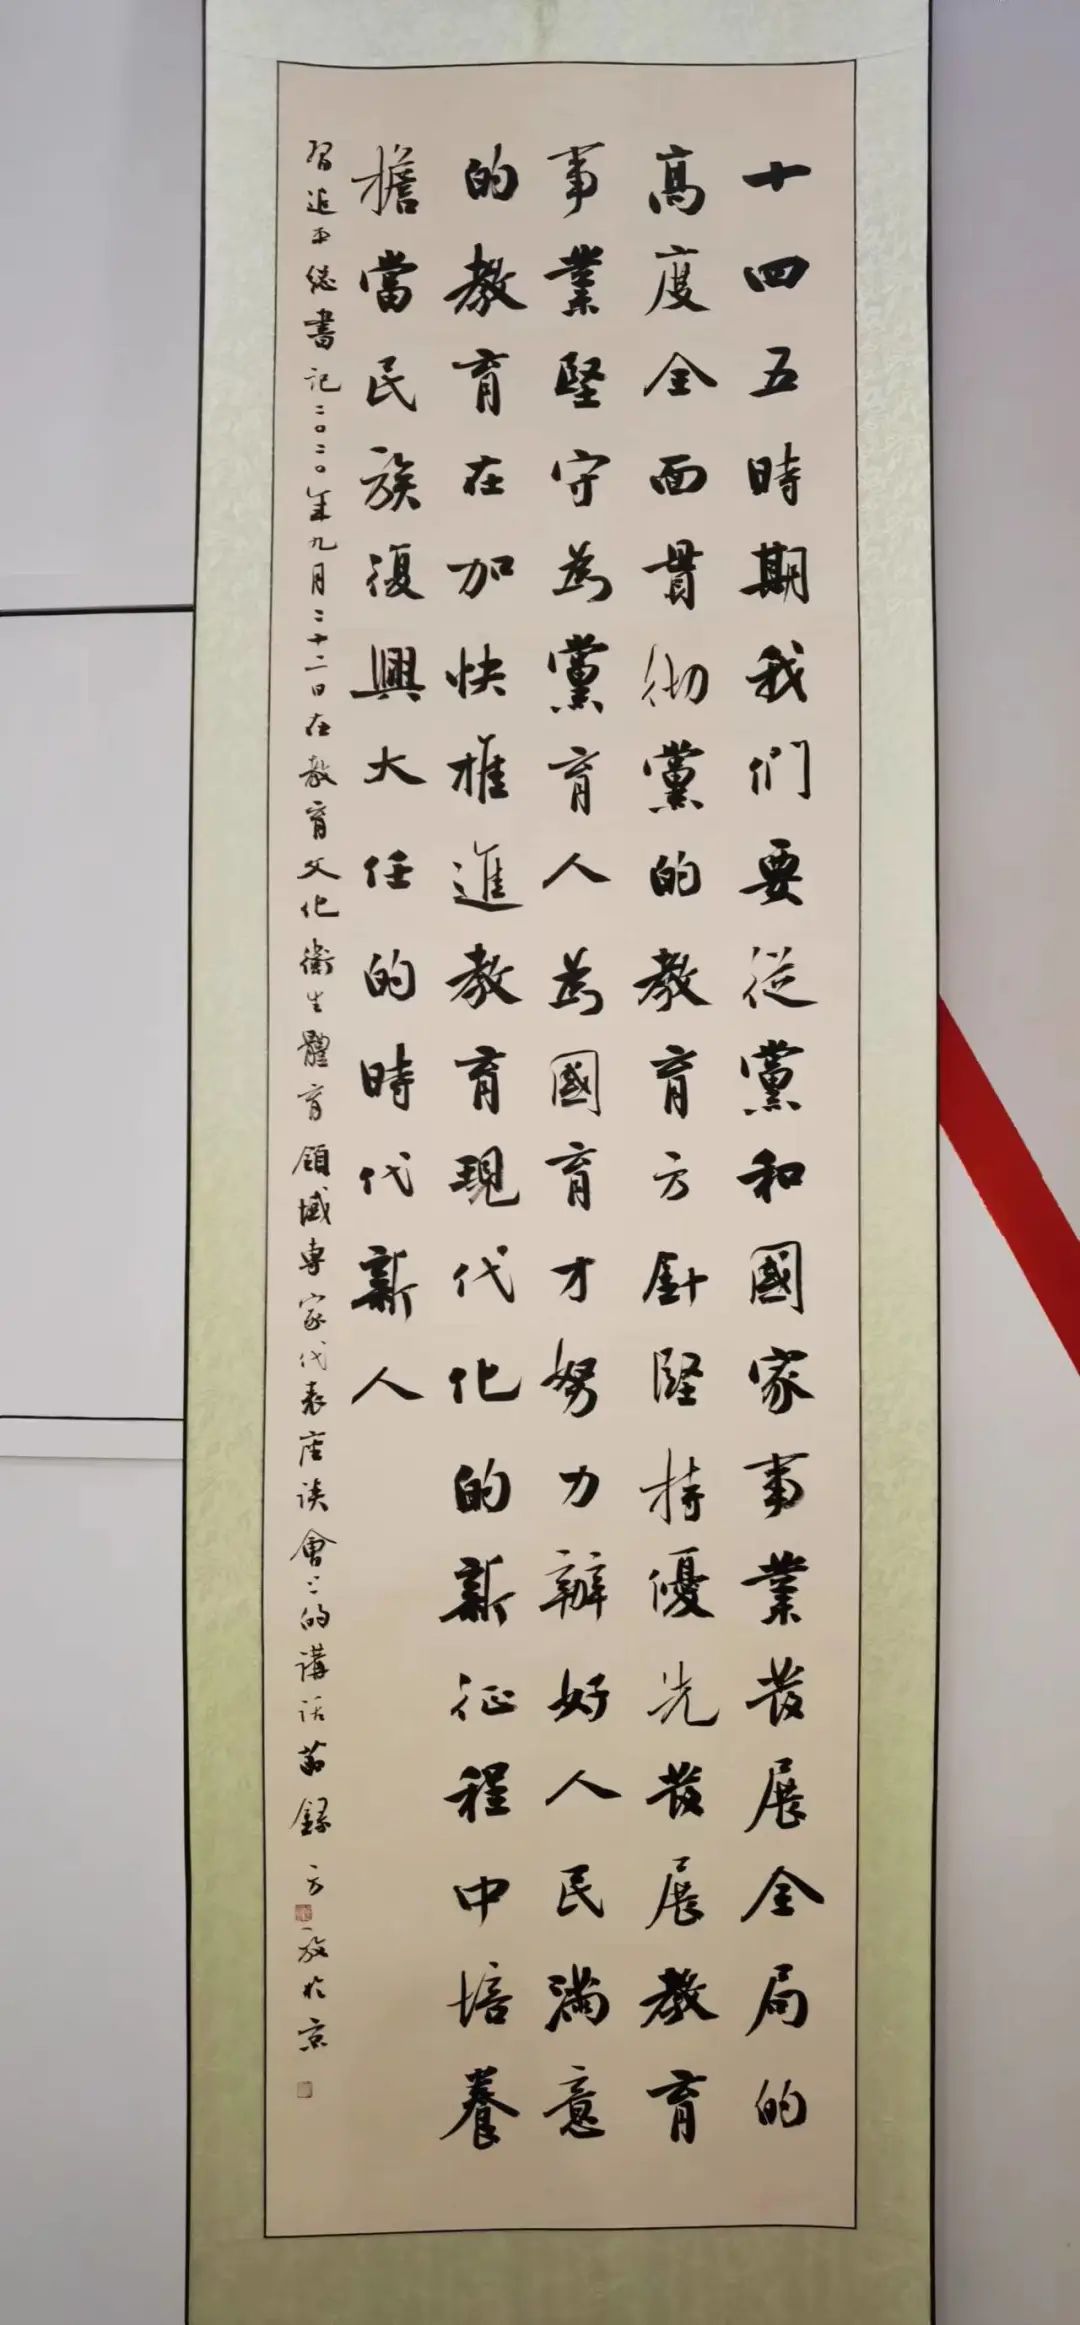 十四五時期我们要從黨和國家事業發展全局的
高度全面貫彻黨的教育方針堅持優先發展教育
事業堅守為黨育人為國育才努力辦好人民滿意
的教育在加快推進教育現代化的新征程中培養
擔當民族復興大任的時代新人
習近平總書記二〇二〇年九月二十二日在教育文化衛生體育領域專家代表座談會上的講話節錄 方放於京